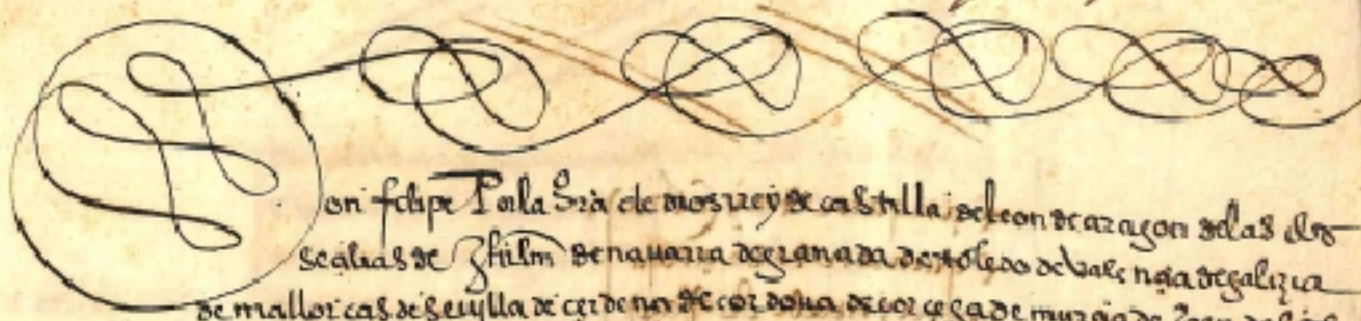 Don felipe Por la gra de dios rrey de castilla de leon de aragon de las dos
secilias de Jhrlm de navarra de granada de toledo de valencia de galizia
de mallorcas de sevylla de cerdena de cordova de corcega de murcia de Jaen